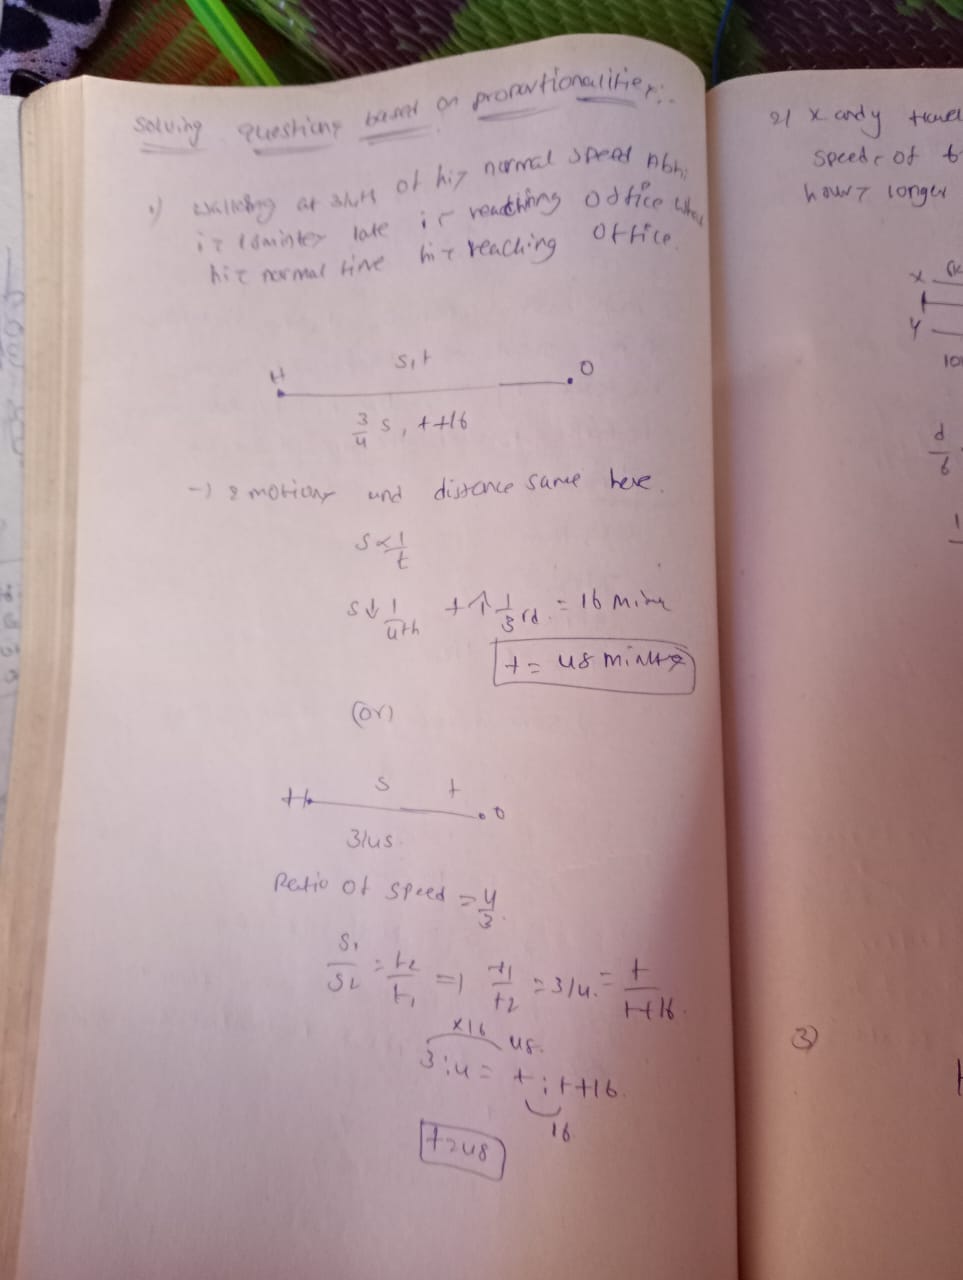 Solving Questions based on proportionalities:-
1) walking at 3/4th of his normal speed Abhi
is 16mintes late in reaching office
his normal time his reaching office.
H s,t O
3/4 s, t+16
-) 2 motions and distance same here.
s∝1/t
s↓ 1/4th t↑ 1/3rd = 16 mins
t = 48 mintes
(or)
H s t O
3/4s.
Ratio of speed = 4/3.
S1/S2 = t2/t1 =) t1/t2 = 3/4. = t/t+16.
x16 48.
3:4 = t:t+16.
16
t=48
2) x and y travel
speeds of 6
hours longer
x
y
10
d/6
1
3)
H